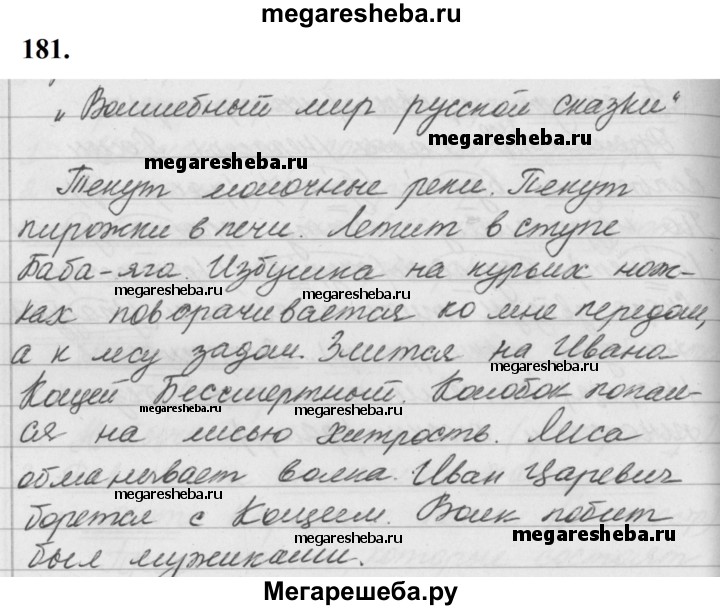 megaresheba.ru
181.
„Волшебный мир русской сказки“
megaresheba.ru
megaresheba.ru
Текут молочные реки. Пекут
пирожки в печи. Летит в ступе
Баба-яга. Избушка на курьих нож-
megaresheba.ru
megaresheba.ru
ках поворачивается ко мне передом,
а к лесу задом. Злится на Ивана
megaresheba.ru
Кощей Бессмертный. Колобок попал-
megaresheba.ru
megaresheba.ru
ся на лисью хитрость. Лиса
обманывает волка. Иван Царевич
megaresheba.ru
megaresheba.ru
борется с Кощеем. Волк побит
megaresheba.ru
был мужиками.
Мегарешеба.ру